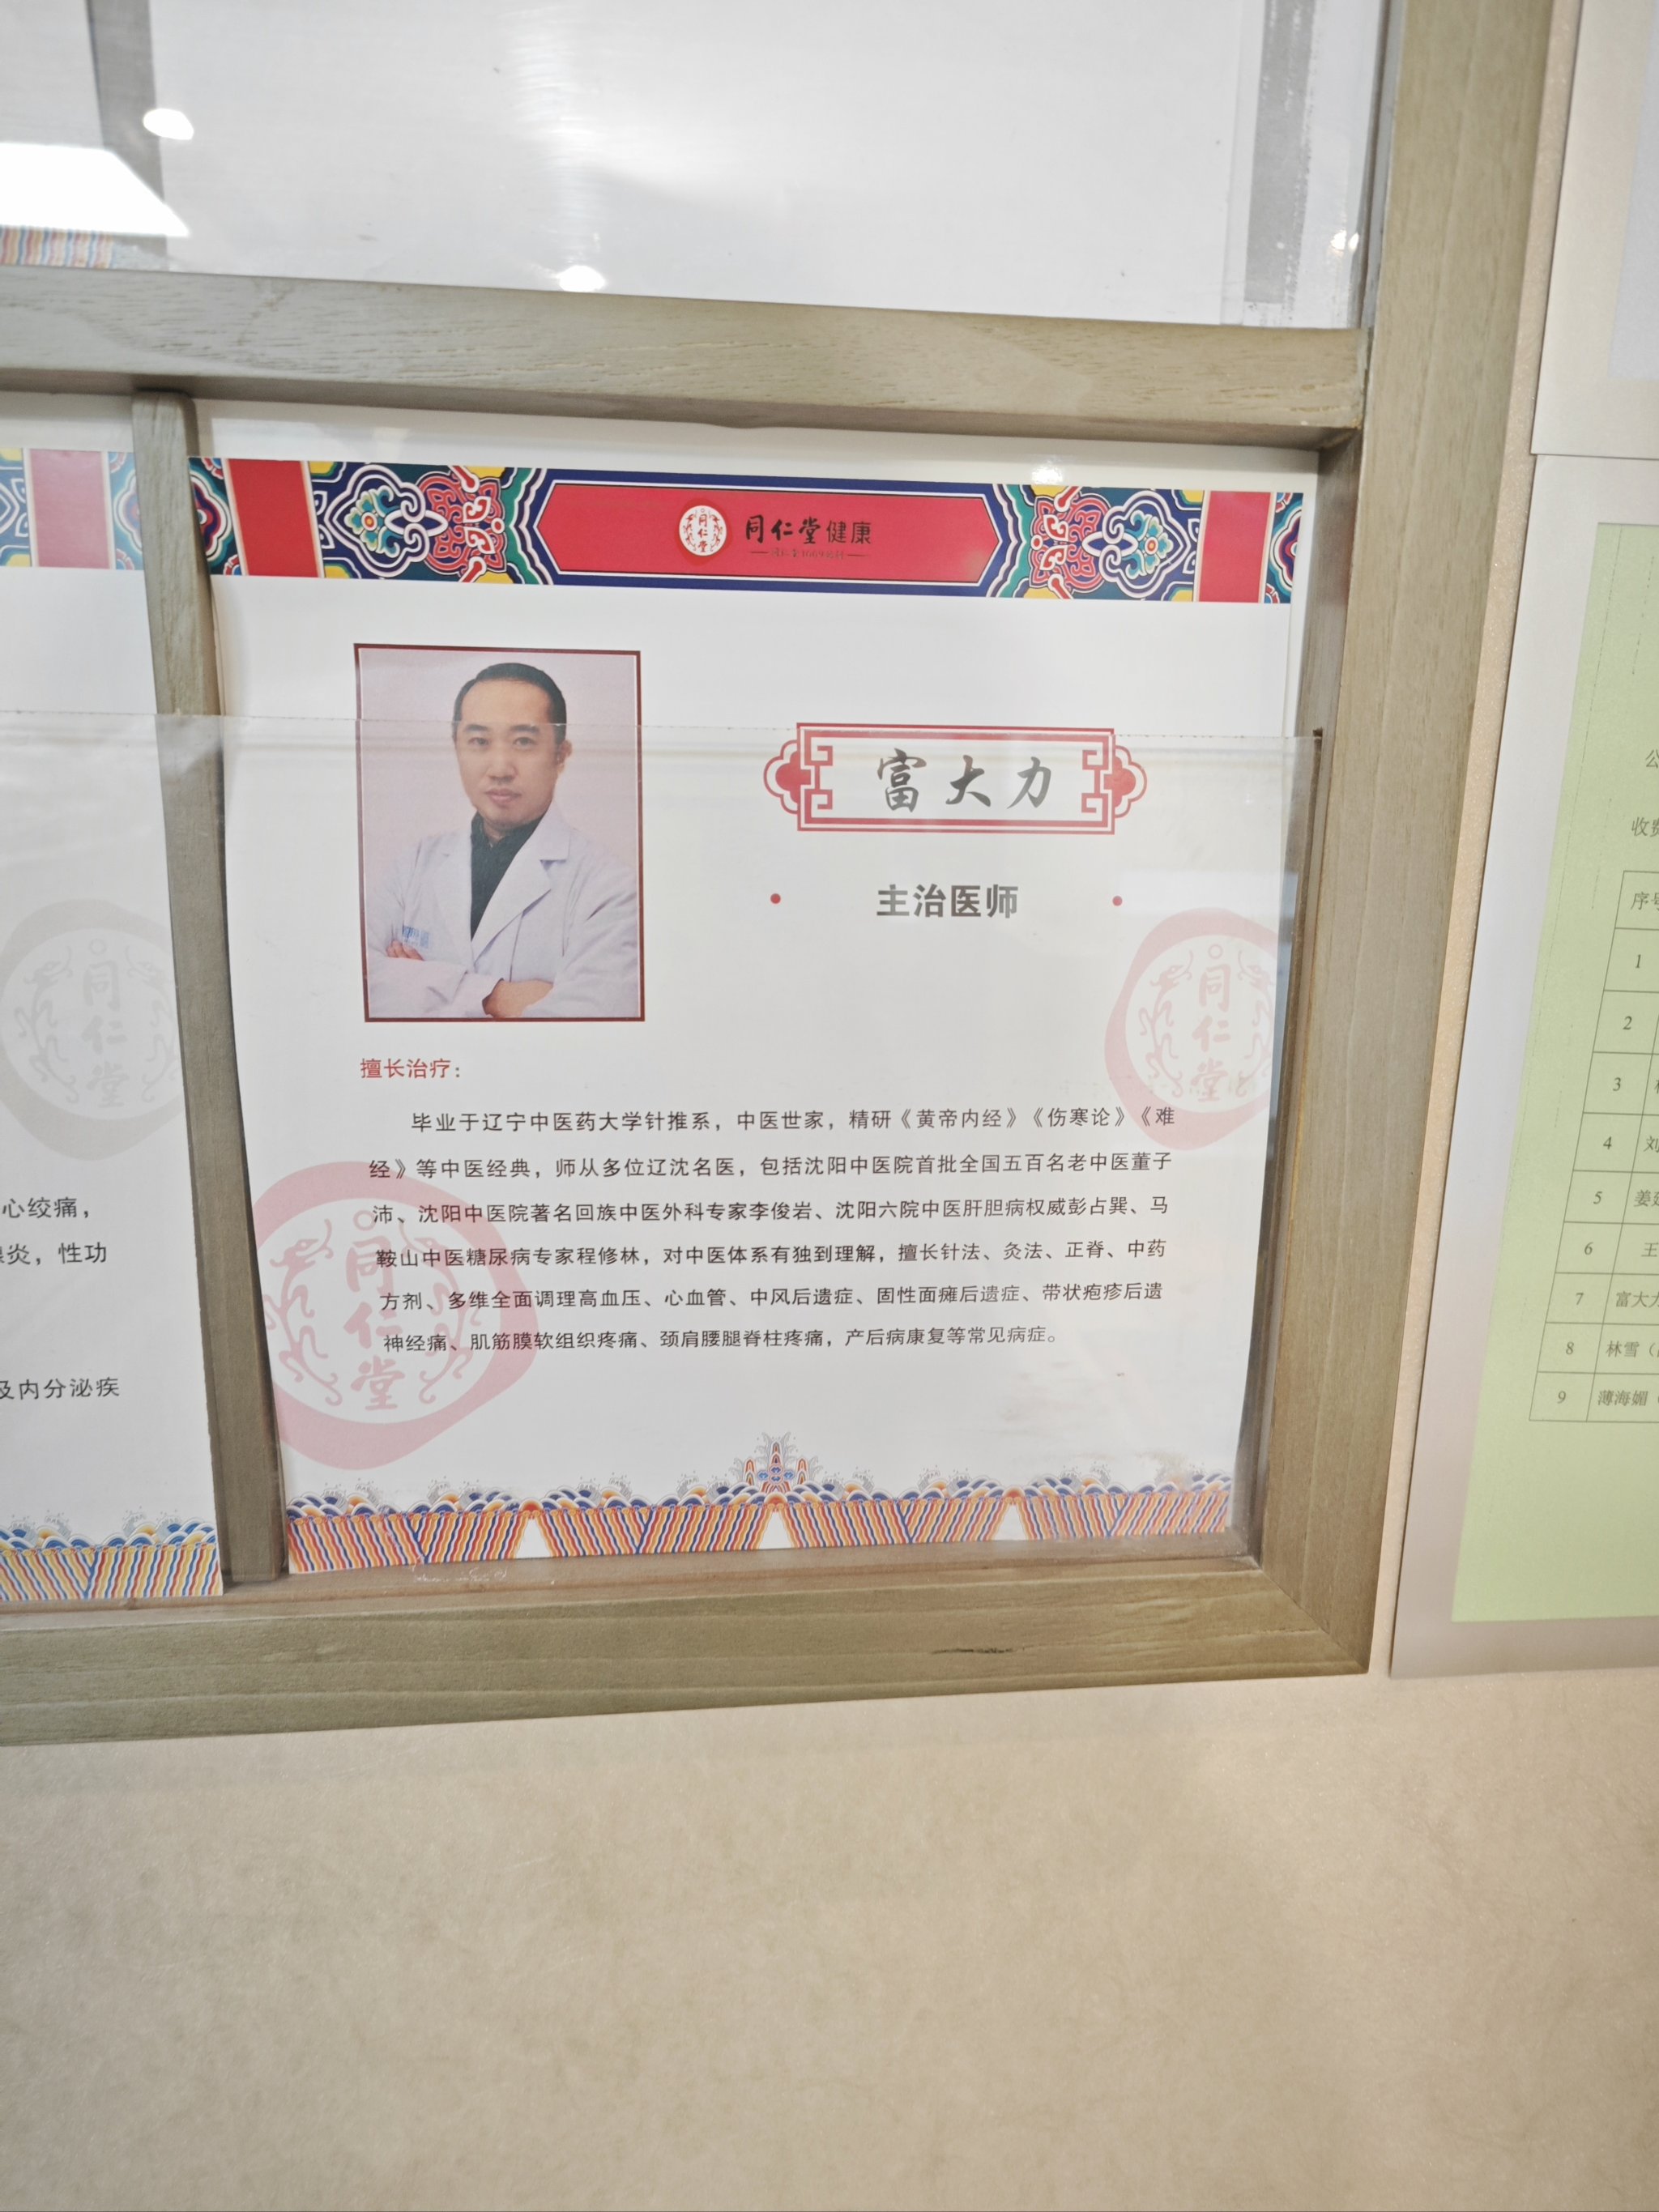 同仁堂健康
同仁堂
富大力
主治医师
同仁堂
擅长治疗：
毕业于辽宁中医药大学针推系，中医世家，精研《黄帝内经》《伤寒论》《难
经》等中医经典，师从多位辽沈名医，包括沈阳中医院首批全国五百名老中医董子
沛、沈阳中医院著名回族中医外科专家李俊岩、沈阳六院中医肝胆病权威彭占巽、马
鞍山中医糖尿病专家程修林，对中医体系有独到理解，擅长针法、灸法、正脊、中药
方剂、多维全面调理高血压、心血管、中风后遗症、固性面瘫后遗症、带状疱疹后遗
神经痛、肌筋膜软组织疼痛、颈肩腰腿脊柱疼痛，产后病康复等常见病症。
同仁堂
同仁堂
心绞痛，
炎，性功
及内分泌疾
公
收费
序号
1
2
3
4 刘
5 姜
6 王
7 富大力
8 林雪（
9 薄海媚（